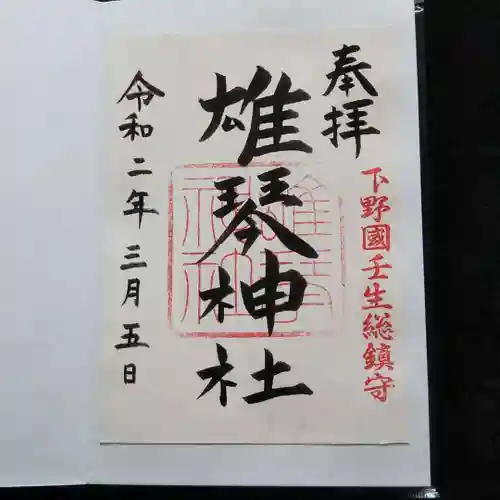 奉拝
下野國壬生総鎮守
雄琴神社
令和二年三月五日
雄琴
神社